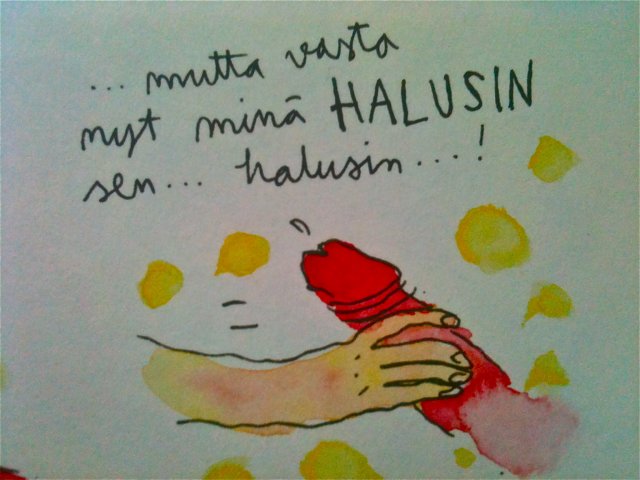 ... mutta vasta
nyt minä HALUSIN
sen... halusin...!